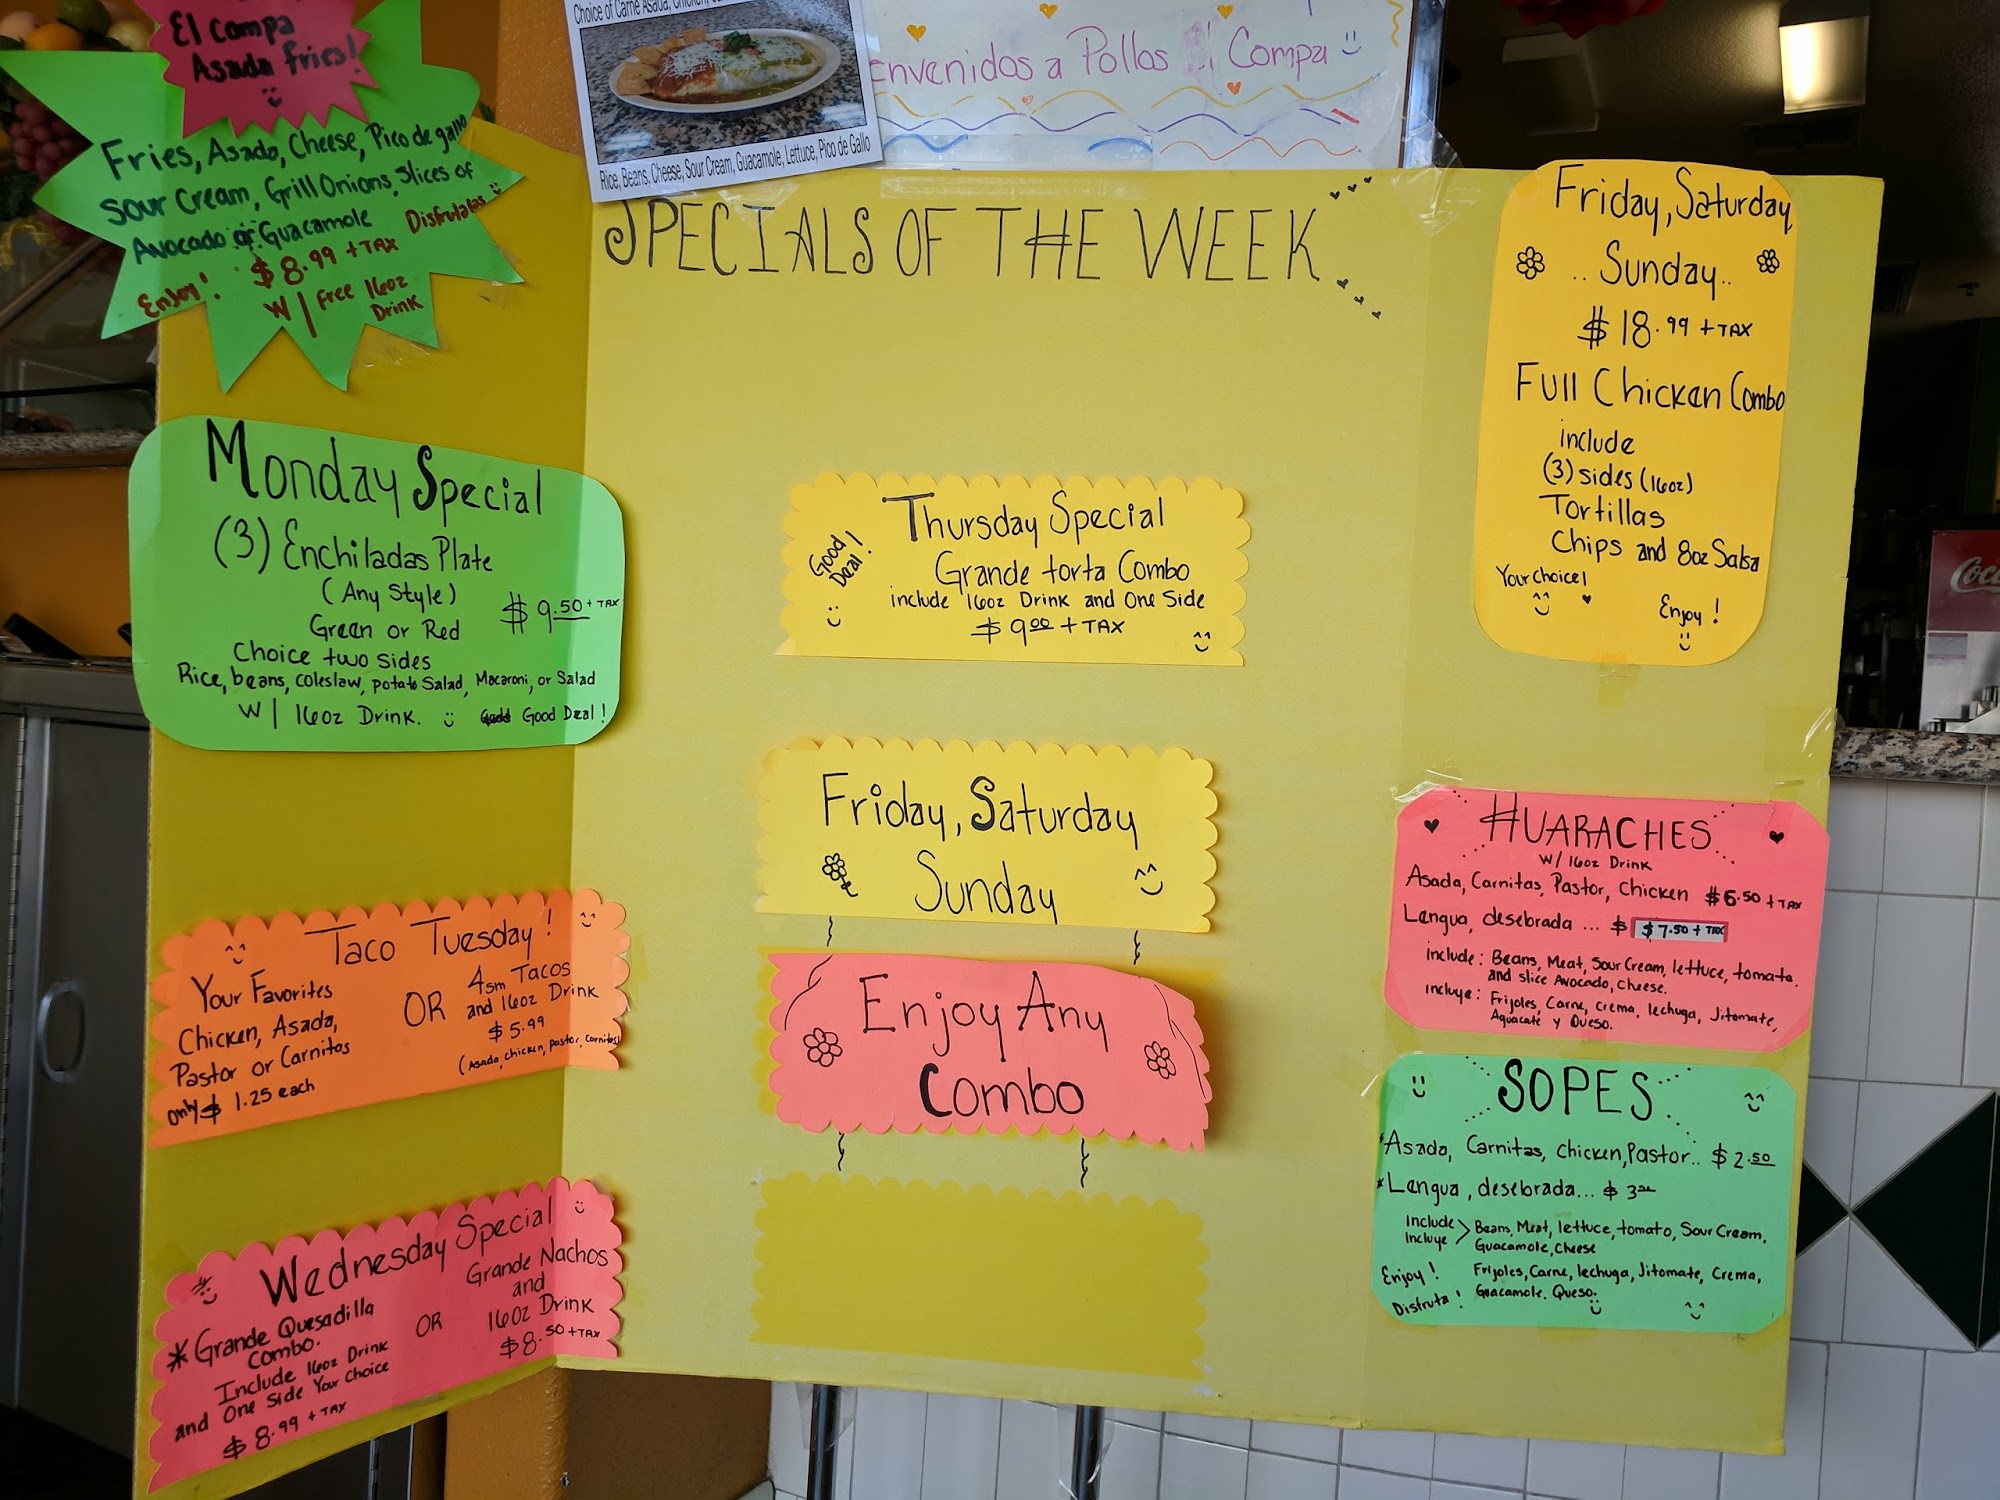 El Compa
Asada fries!
Fries, Asada, Cheese, Pico de gallo
Sour Cream, Grill Onions, Slices of
Avocado or Guacamole Disfrutalas
Enjoy! $8.99 + TAX
W/ Free 16oz
Drink
Choice of Carne Asada, Chicken,
Rice, Beans, Cheese, Sour Cream, Guacamole, Lettuce, Pico de Gallo
envenidos a Pollos El Compa
SPECIALS OF THE WEEK
Monday Special
(3) Enchiladas Plate
(Any Style)
$9.50 + TAX
Green or Red
Choice two sides
Rice, beans, coleslaw, potato Salad, Macaroni, or Salad
W/ 16oz Drink. Good Deal!
Taco Tuesday!
Your Favorites
Chicken, Asada,
Pastor or Carnitas
only $ 1.25 each
OR
4sm Tacos
and 16oz Drink
$5.99
(Asada, chicken, pastor, carnitas)
Wednesday Special
*Grande Quesadilla
Combo.
Include 16oz Drink
and One Side Your Choice
$8.99 + TAX
OR
Grande Nachos
and
16oz Drink
$8.50 + TAX
Good
Deal!
Thursday Special
Grande torta Combo
include 16oz Drink and One Side
$9.00 + TAX
Friday, Saturday
Sunday
Enjoy Any
Combo
Friday, Saturday,
.. Sunday..
$18.99 + TAX
Full Chicken Combo
include
(3) sides (16oz)
Tortillas
Chips and 8oz Salsa
Your Choice!
Enjoy!
Coca
HUARACHES
W/ 16oz Drink
Asada, Carnitas, Pastor, Chicken $6.50 + TAX
Lengua, desebrada ... $ $7.50 + TAX
include: Beans, Meat, Sour Cream, lettuce, tomato.
and slice Avocado, Cheese.
incluye: Frijoles, Carne, crema, lechuga, Jitomate,
Aguacate y Queso.
SOPES
*Asada, Carnitas, Chicken, Pastor.. $2.50
*Lengua, desebrada... $3.00
include
incluye > Beans, Meat, lettuce, tomato, Sour Cream,
Guacamole, cheese
Enjoy! Frijoles, Carne, lechuga, Jitomate, Crema,
Disfruta! Guacamole. Queso.